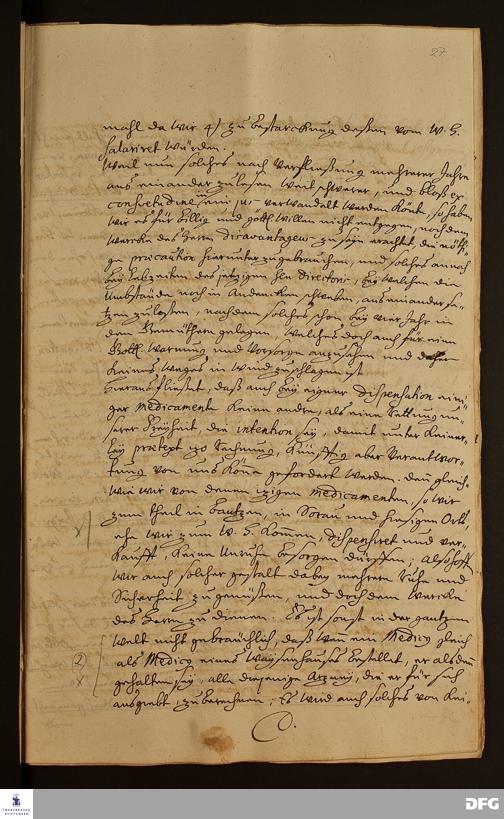 27
mahl da wir 4) zu bestarckung deßen vom W. H.
salariret würden.
Weil nun solches nach Verfließung mehrerer Jahre
aus einander zulesen weit schwerer, und bloß ex
wir es für billig und gottl. willen nicht entgegen, noch dem
Wercke des Herrn disavantageux zu seyn erachtet, die nöthi-
ge præcaution hierunter zugebrauchen, und solches annoch
bey Lebzeiten des jetzigen Hen Directoris, bey welchen die
Umbstände noch in Andencken schweben, aus einander se-
tzen zu laßen, nachdem solches schon bey vier Jahr in
den Gemüthern gelegen, welches doch auch für eine
Göttl. Warnung und Vorsorge anzusehen und daher
keines Weges in Wind zuschlagen ist.
Hieraus fließet, daß auch bey eigner dispensation eini-
ger Medicamente keine andre, als eine Rettung un-
serer Freyheit, die intention sey, damit unter keiner-
ley prætext itzo Rechnung, künfftig aber Verantwor-
tung von uns könne gefordert werden. denn gleich-
wie wir von denen itzigen Medicamenten, so wir
zum theil in Bautzen, in Sorau und hiesigen Orth,
ehe wir zum W. H. kommen, dispensiret und ver-
kaufft, keine Unruhe besorgen dürffen; also hoff
wir auch solcher gestalt dabey mehrere Ruhe und
Sicherheit zu genießen, und doch dem Wercke
des Herrn zu dienen. Es ist sonst in der gantzen
Welt nicht gebräuchlich, daß wenn ein Medicus gleich
als Medicus eines Waysenhauses bestellet, er alsdenn
gehalten sey, alle diejenige Artzney, die er für sich
ausgiebt, zu berechnen, Es wird auch solches von kei-
2)
FRANCKESCHE
STIFTUNGEN
DFG